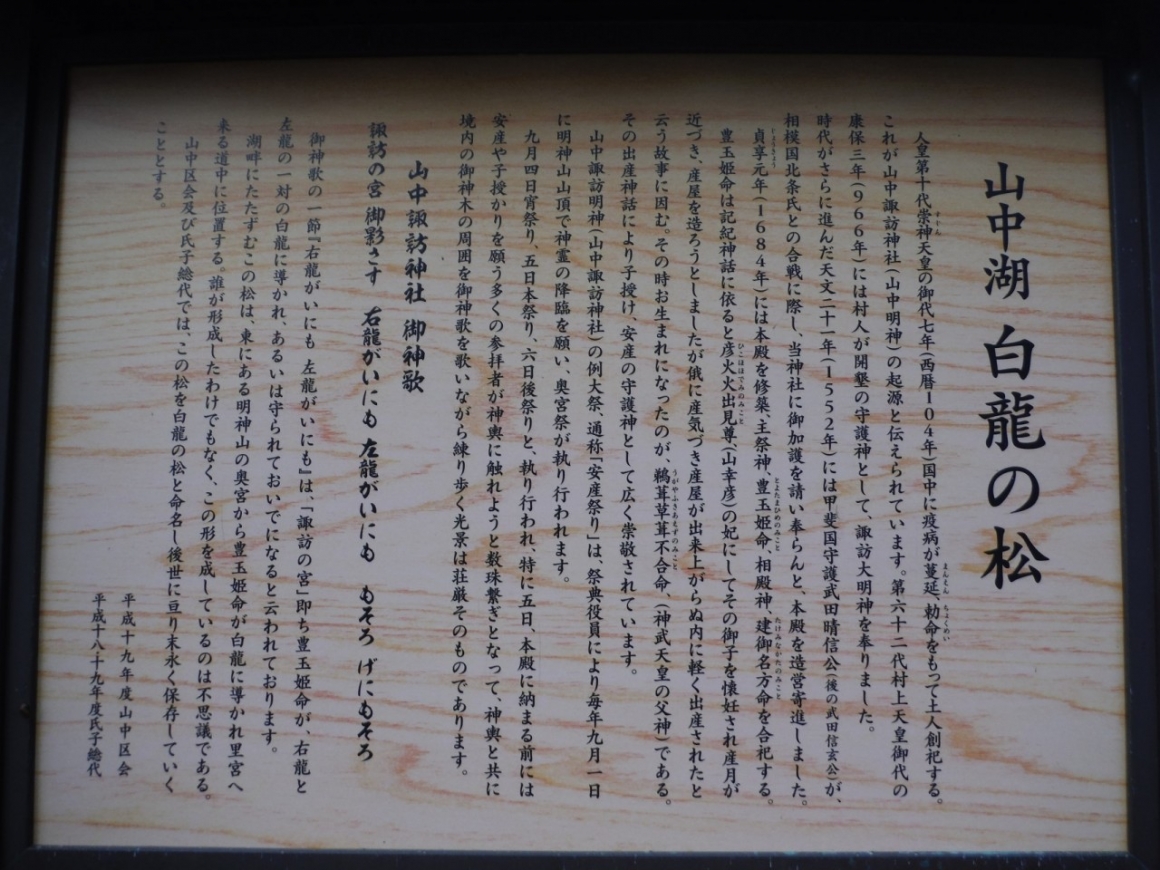 山中湖 白龍の松
人皇第十代崇神天皇の御代七年(西暦104年)国中に疫病が蔓延、勅命をもって土人創祀する。
これが山中諏訪神社(山中明神)の起源と伝えられています。第六十二代村上天皇御代の
康保三年(966年)には村人が開墾の守護神として、諏訪大明神を奉りました。
時代がさらに進んだ天文二十一年(1552年)には甲斐国守護武田晴信公(後の武田信玄公)が、
相模国北条氏との合戦に際し、当神社に御加護を請い奉らんと、本殿を造営寄進しました。
貞享元年(1684年)には本殿を修築、主祭神、豊玉姫命、相殿神、建御名方命を合祀する。
豊玉姫命は記紀神話に依ると彦火火出見尊(山幸彦)の妃にしてその御子を懐妊され産月が
近づき、産屋を造ろうとしましたが俄に産気づき産屋が出来上がらぬ内に軽く出産されたと
云う故事に因む。その時お生まれになったのが、鵜葺草葺不合命、(神武天皇の父神)である。
その出産神話により子授け、安産の守護神として広く崇敬されています。
山中諏訪明神(山中諏訪神社)の例大祭、通称「安産祭り」は、祭典役員により毎年九月一日
に明神山山頂で神霊の降臨を願い、奥宮祭が執り行われます。
九月四日宵祭り、五日本祭り、六日後祭りと、執り行われ、特に五日、本殿に納まる前には
安産や子授かりを願う多くの参拝者が神輿に触れようと数珠繋ぎとなって、神輿と共に
境内の御神木の周囲を御神歌を歌いながら練り歩く光景は荘厳そのものであります。
山中諏訪神社 御神歌
諏訪の宮 御影さす 右龍がいにも 左龍がいにも もそろ げにもそろ
御神歌の一節『右龍がいにも 左龍がいにも』は、「諏訪の宮」即ち豊玉姫命が、右龍と
左龍の一対の白龍に導かれ、あるいは守られておいでになると云われております。
湖畔にたたずむこの松は、東にある明神山の奥宮から豊玉姫命が白龍に導かれ里宮へ
来る道中に位置する。誰が形成したわけでもなく、この形を成しているのは不思議である。
山中区会及び氏子総代では、この松を白龍の松と命名し後世に亘り末永く保存していく
こととする。
平成十九年度山中区会
平成十八十九年度氏子総代